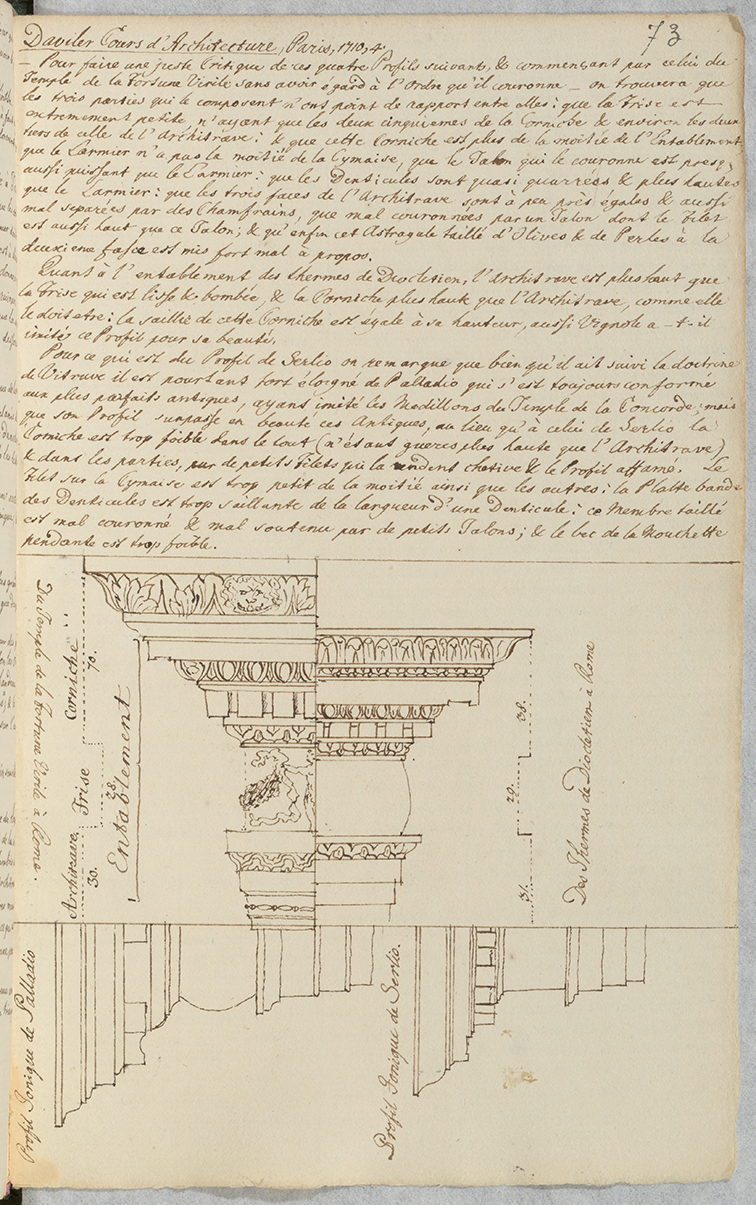 73
Daviler Cours d'Architecture, Paris, 1710, 4°
— Pour faire une juste Critique de ces quatre Profils suivants, & commençant par celui du
Temple de la Fortune Virile sans avoir égard à l'Ordre qu'il couronne — on trouvera que
les trois parties qui le composent n'ont point de rapport entre elles: que la Frise est
extremement petite n'ayant que les deux cinquiemes de la Corniche & environ les deux
tiers de celle de l'Architrave: & que cette Corniche est plus de la moitié de l'Entablement
que le Larmier n'a pas la moitié de la Cymaise, que le Talon qui le couronne est presq.
aussi puissant que le Larmier: que les Denticules sont quasi quarrées & plus hautes
que le Larmier: que les trois faces de l'Architrave sont à peu près égales & aussi
mal separées par des Chamfrains, que mal couronnées par un Talon dont le Filet
est aussi haut que ce Talon; & qu'enfin cet Astragale taillé d'Olives & de Perles à la
deuxieme fasce est mis fort mal à propos.
Quant à l'entablement des thermes de Diocletien, l'Architrave est plus haut que
la Frise qui est lisse & bombée, & la Corniche plus haute que l'Architrave, comme elle
le doit etre: la saillie de cette Corniche est égale à sa hauteur, aussi Vignole a-t-il
imités ce Profil pour sa beauté.
Pour ce qui est du Profil de Serlio on remarque que bien qu'il ait suivi la doctrine
de Vitruve il est pourtant fort éloigné de Palladio qui s'est toujours conforme
aux plus parfaits antiques, ayans imité les Modillons du Temple de la Concorde, mais
que son Profil surpasse en beauté ces Antiques, au lieu qu'à celui de Serlio la
Corniche est trop foible dans le tout (n'étant gueres plus haute que l'Architrave)
& dans les parties, par de petits Filets qui la rendent chetive & le Profil affamé. Le
Filet sur la Cymaise est trop petit de la moitié ainsi que les autres: la Platte bande
des Denticules est trop saillante de la largueur d'une Denticule: ce Membre taillé
est mal couronné & mal soutenu par de petits Talons; & le bec de la Mouchette
pendante est trop foible.
Du Temple de la Fortune Virile à Rome.
Corniche
70.
Frise
28.
Architrave
30.
Entablement
38.
29.
31.
Des Thermes de Diocletien à Rome
Profil Ionique de Palladio
Profil Ionique de Serlio.